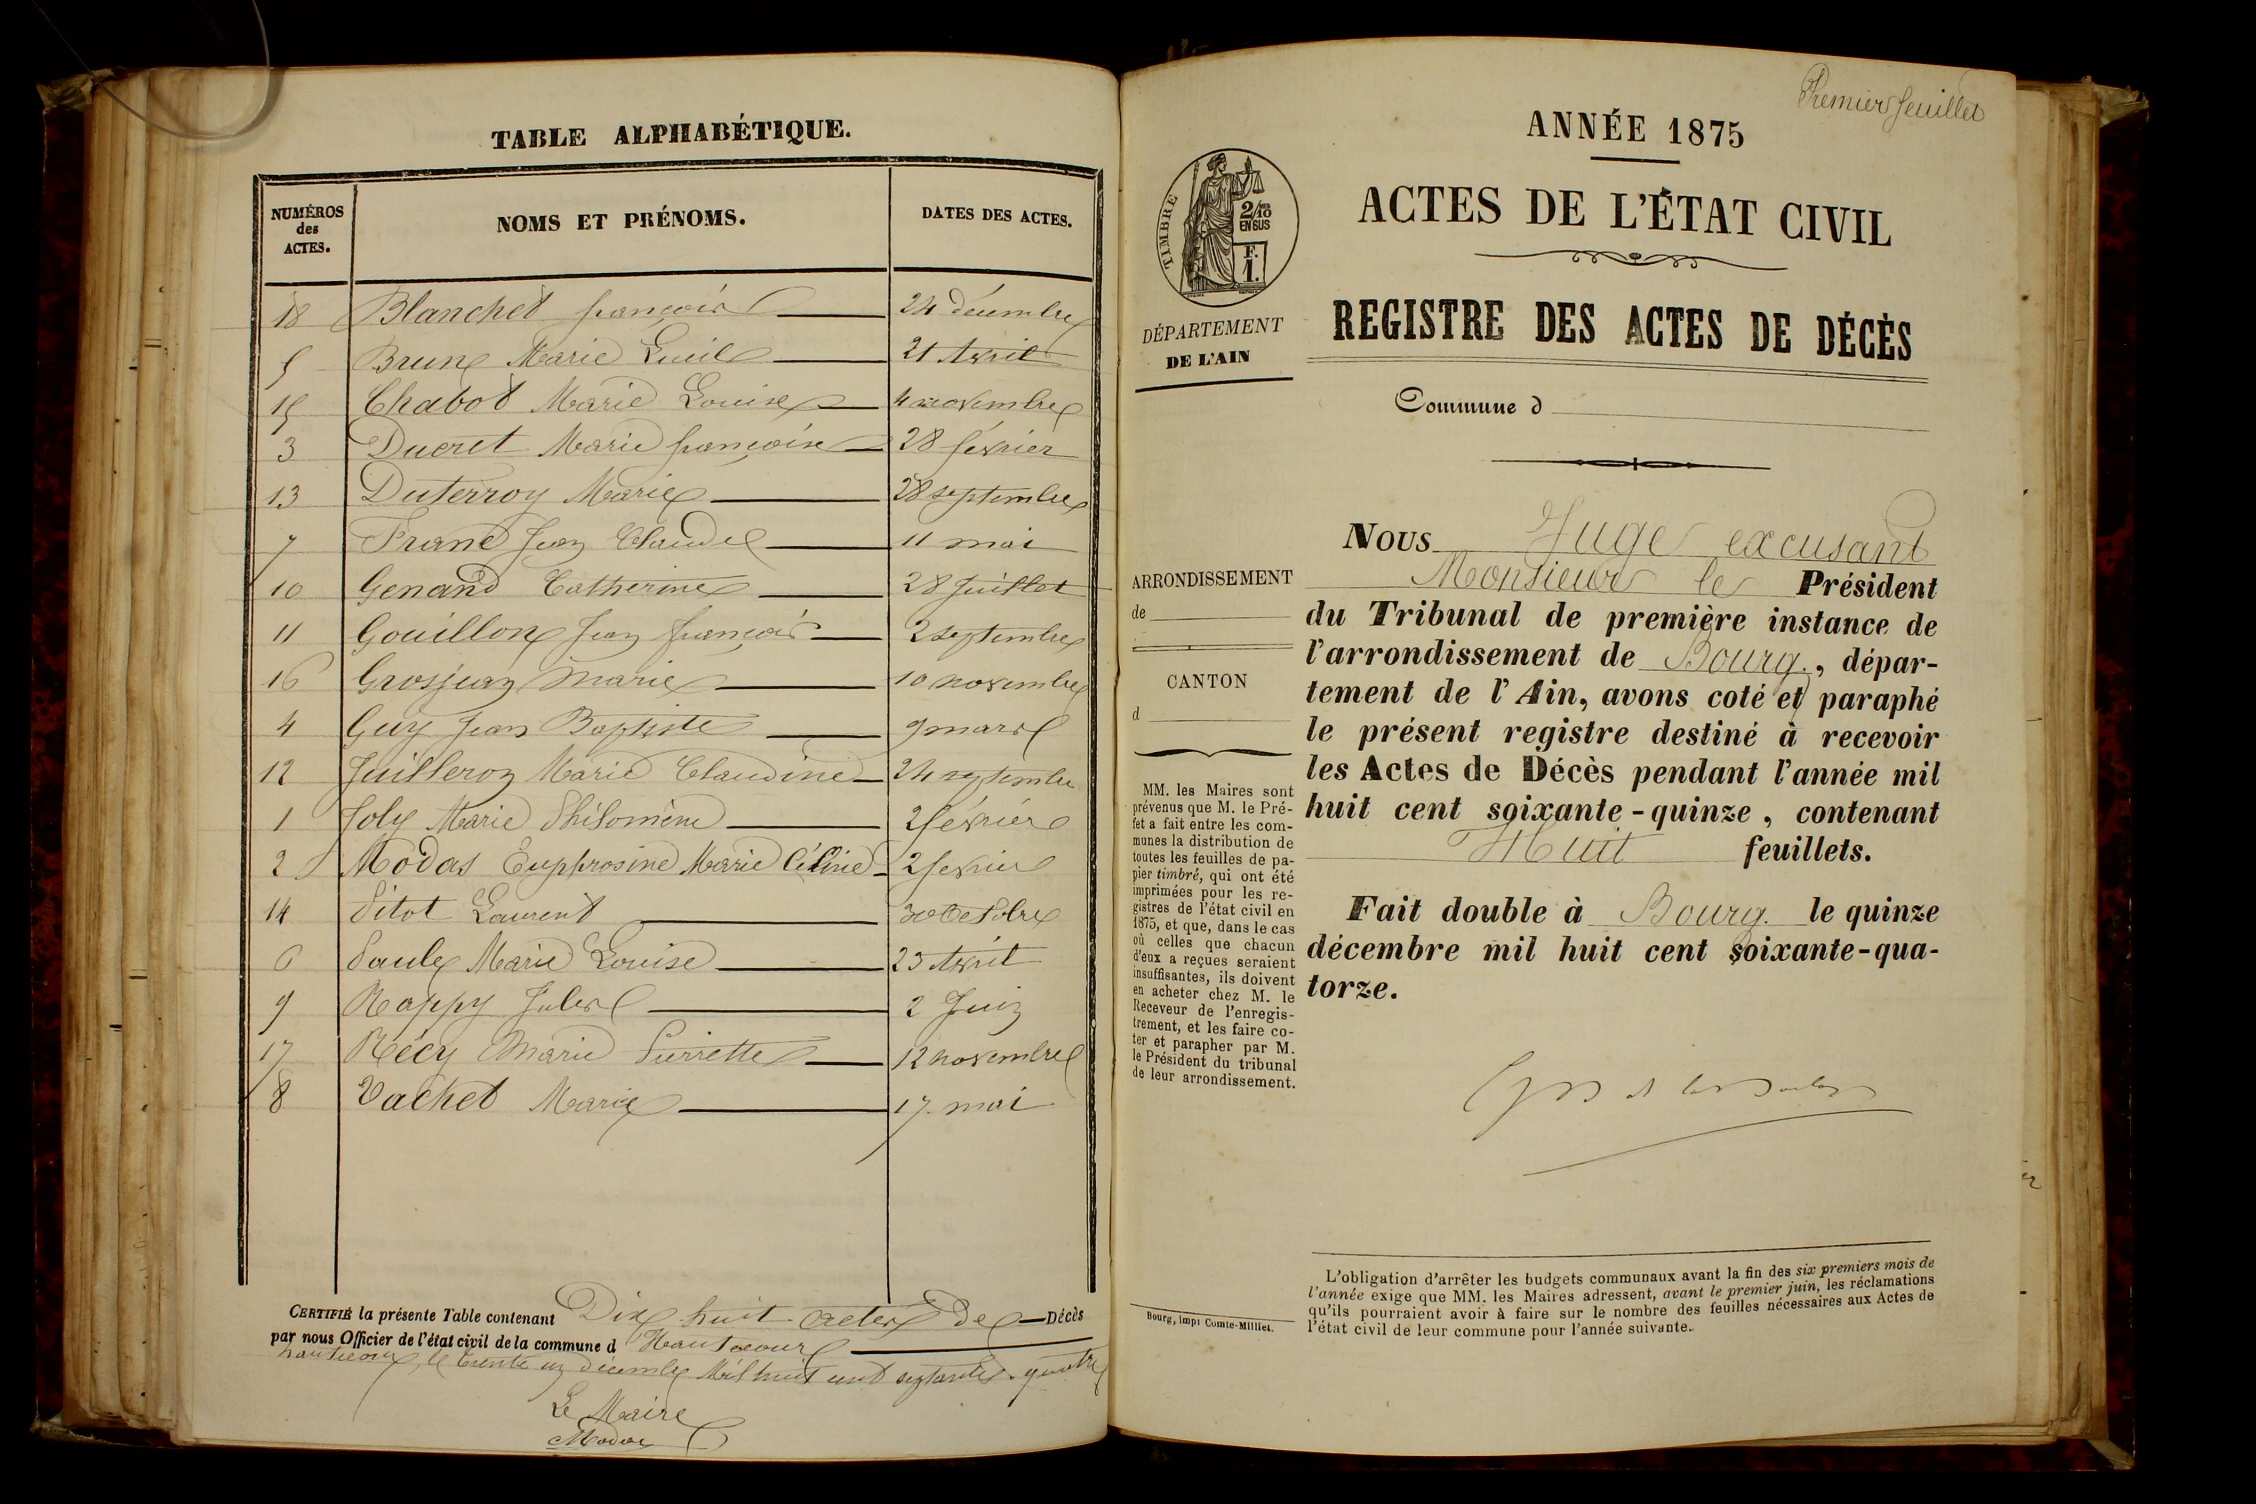 TABLE ALPHABÉTIQUE.
NUMÉROS des ACTES. NOMS ET PRÉNOMS. DATES DES ACTES.
18 Blanchet françois 24 décembre
5 Brun Marie Lucile 21 Avril
15 Chabot Marie Louise 4 novembre
3 Ducret Marie françoise 28 février
13 Duterroy Marie 28 septembre
7 Franc Jean Claude 11 mai
10 Genand Catherine 28 Juillet
11 Gouillon Jean françois 2 septembre
16 Grosjean Marie 10 novembre
4 Guy Jean Baptiste 9 mars
12 Juilleron Marie Claudine 24 septembre
1 Joly Marie Philomène 2 février
2 Modas Euphrosine Marie Céline 2 fevrier
14 Pitot Laurent 30 Octobre
6 Paule Marie Louise 23 Avril
9 Rappy Jules 2 Juin
17 Récy Marie Pierrette 12 novembre
8 Vachet Marie 17 mai
CERTIFIÉ la présente Table contenant Dix huit actes de Décès
par nous Officier de l'état civil de la commune d Hautecour
hautecour, le trente un décembre Mil huit cent septante quatre
Le Maire
Modas
Premier feuillet
ANNÉE 1875
ACTES DE L'ÉTAT CIVIL
TIMBRE
2/10 EN SUS
F. 1.
DÉPARTEMENT
DE L'AIN
REGISTRE DES ACTES DE DÉCÈS
Commune d
ARRONDISSEMENT
de
CANTON
d
MM. les Maires sont
prévenus que M. le Pré-
fet a fait entre les com-
munes la distribution de
toutes les feuilles de pa-
pier timbré, qui ont été
imprimées pour les re-
gistres de l'état civil en
1875, et que, dans le cas
où celles que chacun
d'eux a reçues seraient
insuffisantes, ils doivent
en acheter chez M. le
Receveur de l'enregis-
trement, et les faire co-
ter et parapher par M.
le Président du tribunal
de leur arrondissement.
Bourg, imp: Comte-Milliet.
Nous Juge excusant
Monsieur le Président
du Tribunal de première instance de
l'arrondissement de Bourg, dépar-
tement de l'Ain, avons coté et paraphé
le présent registre destiné à recevoir
les Actes de Décès pendant l'année mil
huit cent soixante-quinze, contenant
Huit feuillets.
Fait double à Bourg le quinze
décembre mil huit cent soixante-qua-
torze.
L'obligation d'arrêter les budgets communaux avant la fin des six premiers mois de
l'année exige que MM. les Maires adressent, avant le premier juin, les réclamations
qu'ils pourraient avoir à faire sur le nombre des feuilles nécessaires aux Actes de
l'état civil de leur commune pour l'année suivante.